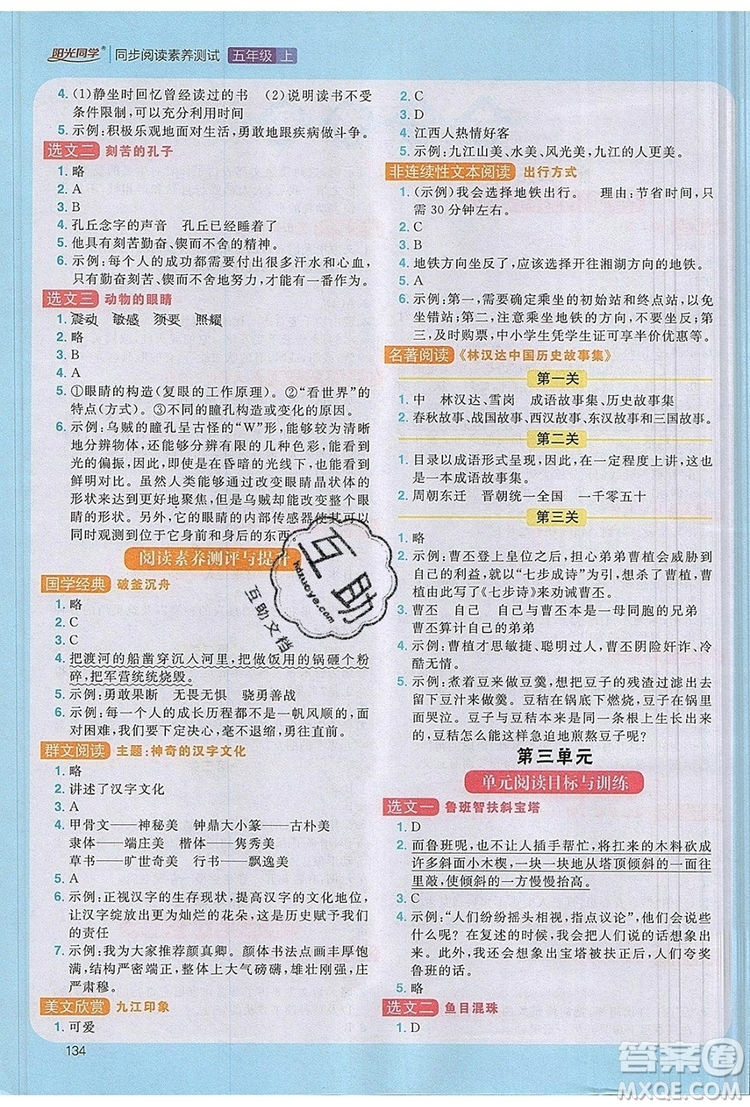 阳光同学 同步阅读素养测试 五年级 上
4. (1)静坐时回忆曾经读过的书 (2)说明读书不受
条件限制,可以充分利用时间
5. 示例:积极乐观地面对生活、勇敢地跟疾病做斗争。
选文二 刻苦的孔子
1. 略
2. A
3. B
4. 孔丘念字的声音 孔丘已经睡着了
5. 他具有刻苦勤奋、锲而不舍的精神。
6. 示例:每个人的成功都需要付出很多汗水和心血,
只有勤奋刻苦、锲而不舍地努力,才能有一番作为。
选文三 动物的眼睛
1. 震动 敏感 须要 照耀
2. 略
3. B
4. A
5. ①眼睛的构造(复眼的工作原理)。②“看世界”的
特点(方式)。③瞳孔的构造或变化的原因。
6. 示例:乌贼的瞳孔呈古怪的“W”形,能够较为清晰
地分辨物体,还能够分辨有限的几种颜色,能看到
光的偏振,因此即使在昏暗的光线下,也能看到
鲜明对比。虽然人类能够改变眼睛晶状体的
形状以更好地聚焦,但乌贼却能改变整个眼睛
的形状。另外,乌贼的眼睛的内部传感器使其可以
同时观看位于它身前和身后的东西
阅读素养测评与提升
国学经典 破釜沉舟
1. 略
2. C
3. C
4. 把渡河的船凿穿沉入河里,把做饭用的锅砸个粉
碎,把军营统统烧毁。
5. 示例:勇敢果断 无畏 骁勇善战
6. 示例:每一个人的成长历程都不会一帆风顺的,面
对困难,我们要下定决心,毫不犹豫向前进发!
群文阅读 主题:神奇的汉字文化
1. 略
2. 讲述了汉字文化
3. A
4. 甲骨文——神秘美 钟鼎大小篆——古朴美
隶体——端庄美 楷体——隽秀美
草书——旷世奇美 行书——飘逸美
5. A
6. 示例:正视汉字的文化内在,提高汉字的文化地位,
让汉字绽放出更为灿烂的花朵,这是历史赋予我们
的责任
7. 示例:我为大家推荐颜真卿。颜体书法结体丰厚饱
满,结构严密正大,用笔浑厚强劲而大气磅礴,庄
严肃穆。
美文欣赏 九江印象
1. 可爱
2. C
3. D
4. 江西人热情好客
5. 示例:九江山美、水美、风光美,九江的人更美。
非连续性文本阅读 出行方式
1. (示例)我会选择地铁出行。 理由:节省时间,只
需30分钟左右。
2. C
3. C
4. 地铁方向坐反了,应该选择开往湘湖方向的地铁。
5. 略
6. 示例:第一,需要确定乘坐的初始站和终点站,以免
坐错站;第二,注意尽量避免在乘车高峰期乘坐;第
三,及时购票,中小学生凭学生证可享半价优惠。
名著阅读 《林汉达中国历史故事集》
第一关
1. 中 林汉达、雪岗 成语故事集、历史故事集
2. 春秋故事、战国故事、西汉故事、东汉故事和三国故事。
第二关
1. 目录以成语形式呈现,因此,在一定程度上讲,这也
是一本成语故事集。
2. 周朝东迁 晋朝统一全国 一千零五十
第三关
1. 略
2. 示例:曹丕登上皇位,但是总觉得曹植会威胁到自
己的利益,就以“七步成诗”刁难曹植,以此打压他。
曹植由此写了《七步诗》以劝诫曹丕。
3. 曹丕 自己 示例:曹植与曹丕本是一母同胞的兄弟
曹丕逼迫自己的弟弟
4. 示例:曹植才思敏捷、聪明过人,曹丕阴险奸诈、冷
酷无情。
5. 示例:煮着豆子做豆羹,想要把豆子的残渣过滤掉,
留下豆汁来做羹。豆秸在锅底下燃烧,豆子在锅里
面哭泣。豆子和豆秸本来是从同一条根上生长出
来的,豆秸为什么这样急迫地煎熬豆子呢?
第三单元
单元阅读目标与训练
选文一 鲁班智扶斜宝塔
1. D
2. 而鲁班呢,也不让人插手帮忙,将扛来的木料砍成
许许多多的斜面小木楔,一块一块地从塔顶倾斜面往
里敲,使倾斜的一方慢慢抬高。
3. C
4. 示例:“人们纷纷摇头相视,指点议论”,他们会说些
什么呢?在复述的时候,我会把这些人说的话想象
出来。我还能想象出来在宝塔被扶正后,人们夸奖
鲁班的话!
选文二 鱼目混珠
1. D
134
互助
hdzuoye.com
互助文档
答案圈
MXQE.COM